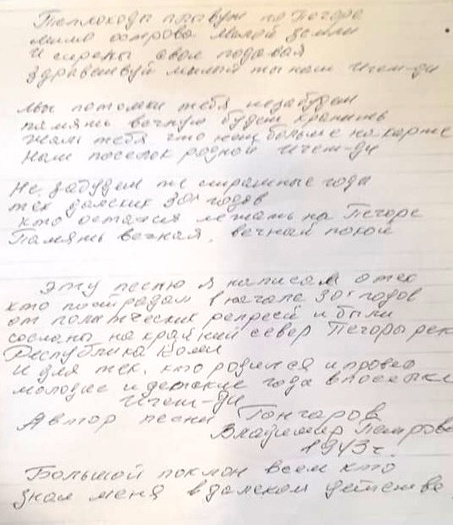 Теплоходы плывут по Печоре
мимо острова милой земли
И сирены свои подавая
Здравствуй милый ты наш Ичет-ди
мы потомки тебя незабудем
память вечную будем хранить
жаль тебя что нет больше на карте
Наш поселок родной Ичет-ди
Не забудем те страшные года
тех далеких 30х годов
кто остался лежать на Печоре
Память вечная, вечный покой
Эту песню я написал о тех
кто пострадал в начале 30х годов
от политических репресий и были
сосланы на крайний север Печоры реки
Республика Коми
И для тех, кто родился и провел
молодые и детские года в поселке
Ичет-ди
Автор песни Гончаров
Владимир Петрович
1943 г.
Большой поклон всем кто
знал меня в далеком детстве